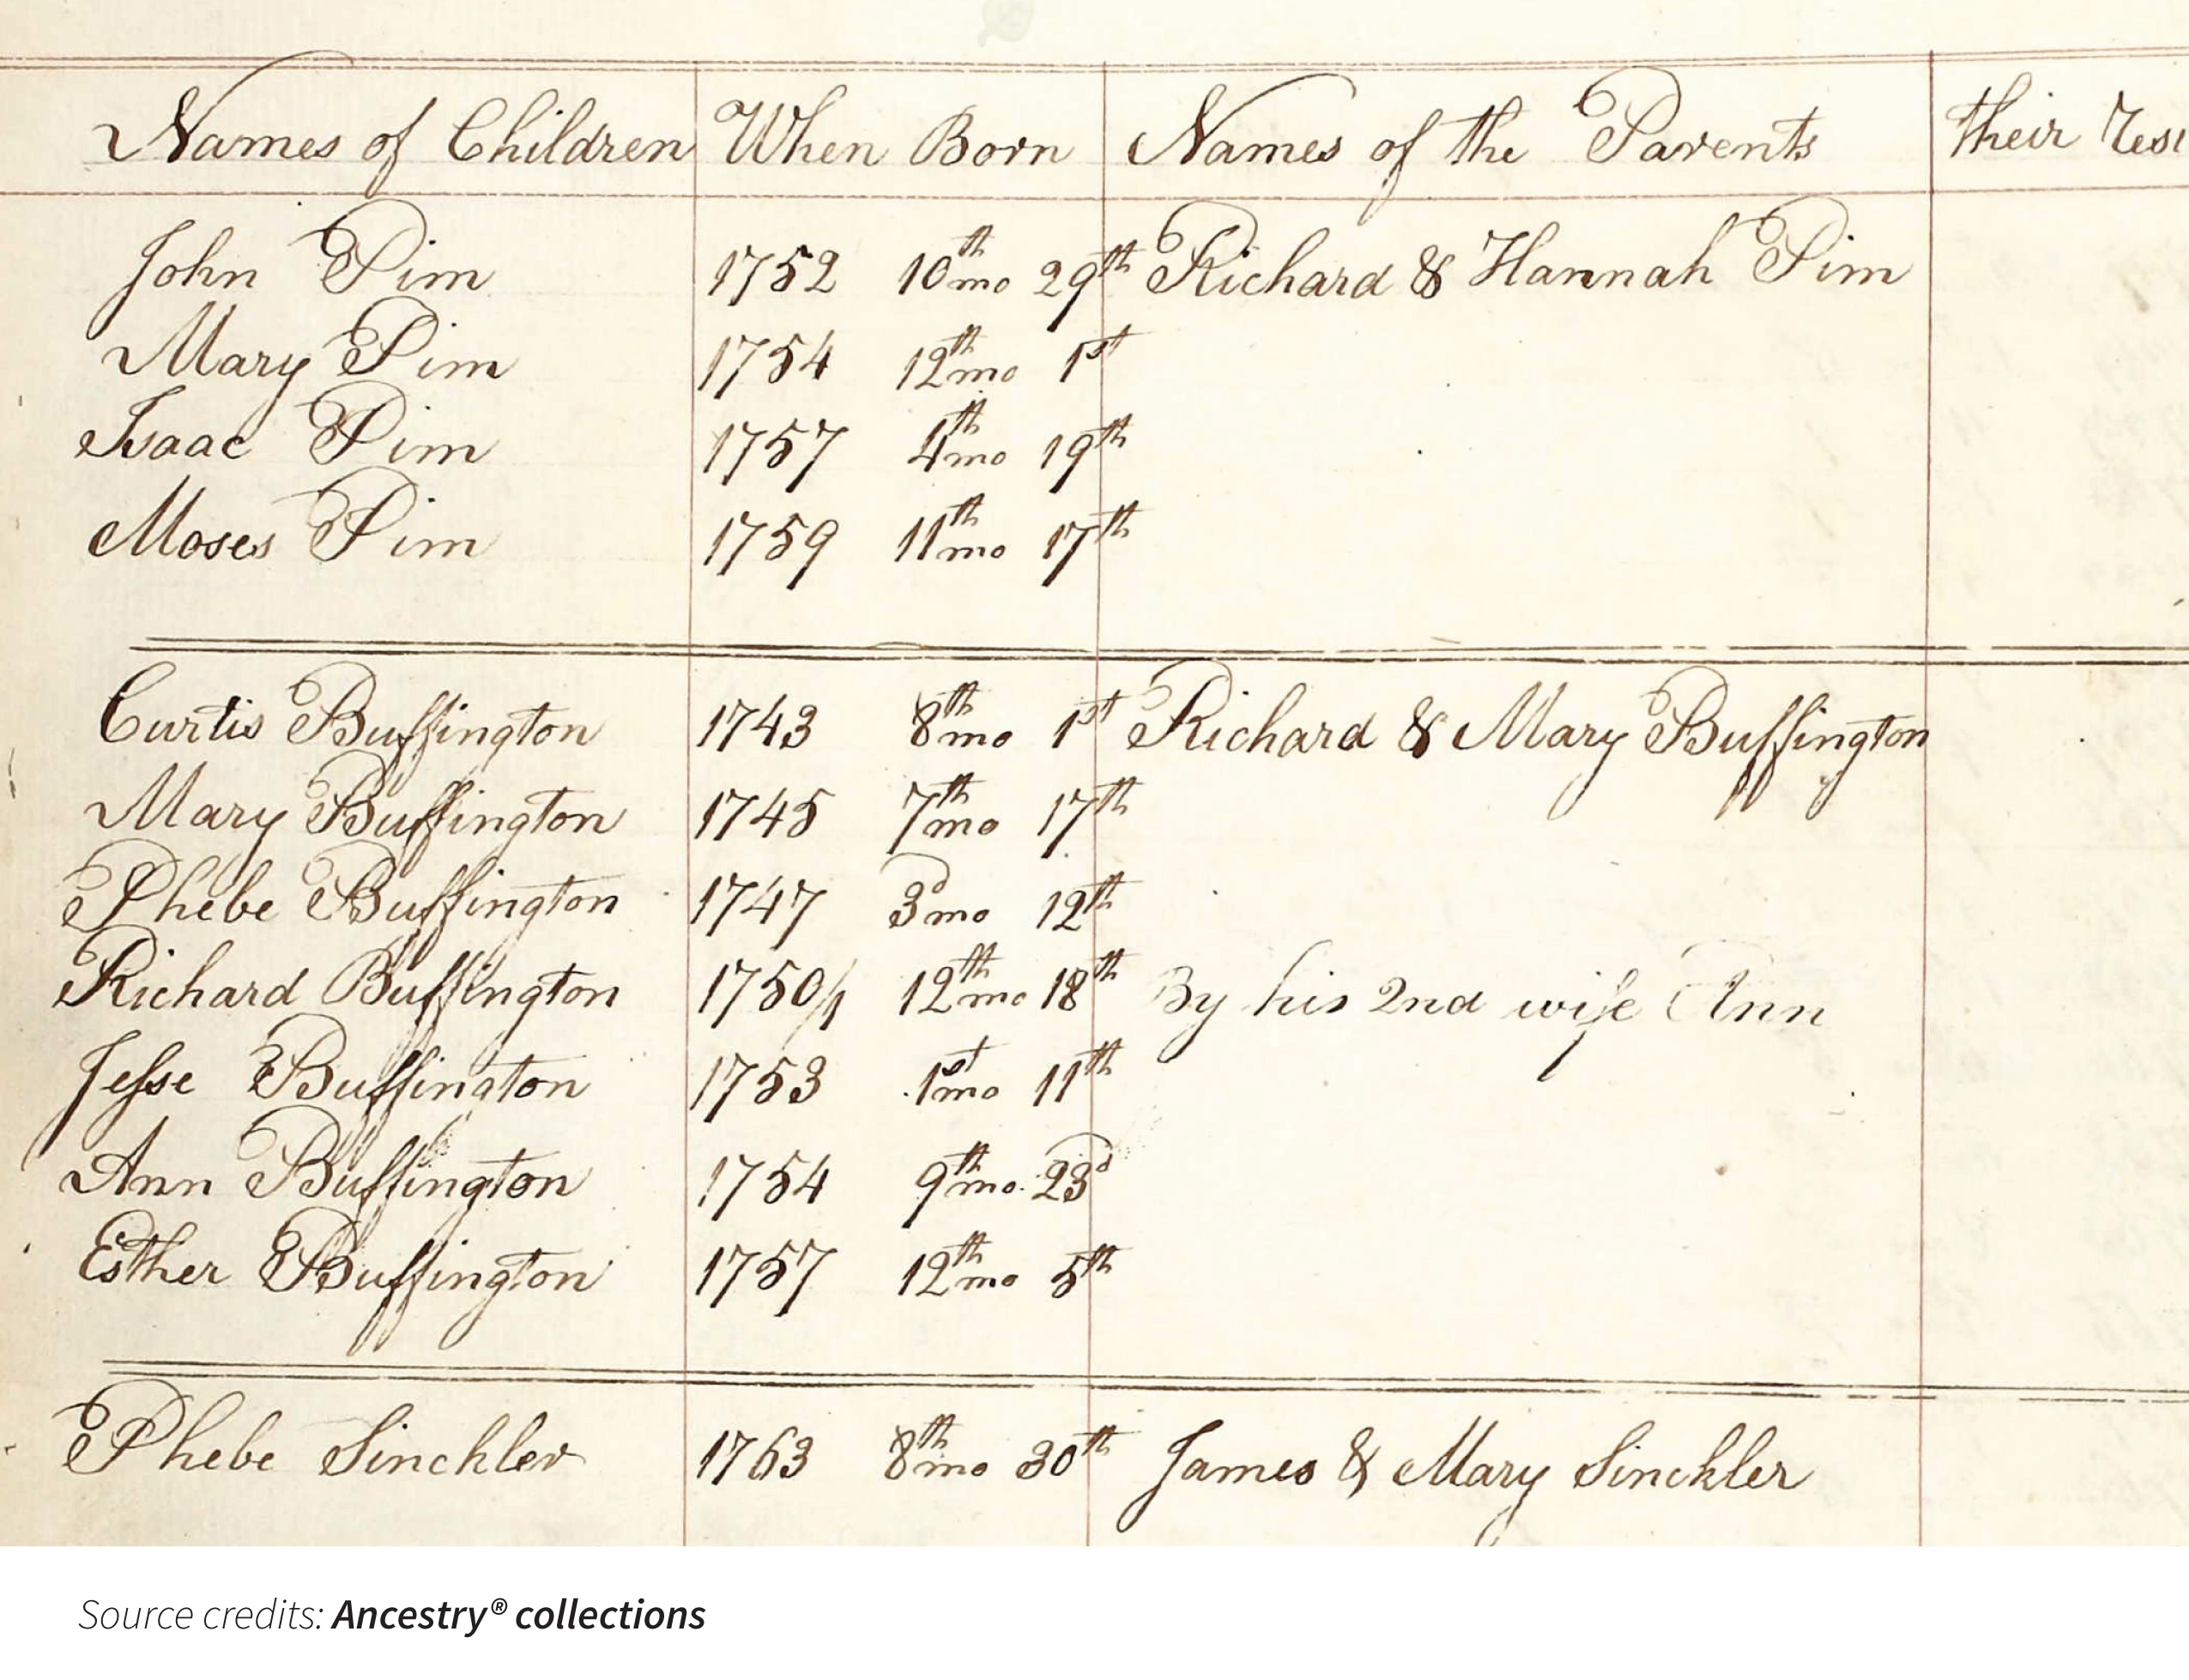 Names of Children When Born Names of the Parents their
John Pim 1752 10th mo 29th Richard & Hannah Pim
Mary Pim 1754 12th mo 1st
Isaac Pim 1757 4th mo 19th
Moses Pim 1759 11th mo 17th
Curtis Buffington 1743 8th mo 1st Richard & Mary Buffington
Mary Buffington 1745 7th mo 17th
Phebe Buffington 1747 3d mo 12th
Richard Buffington 1750/1 12th mo 18th By his 2nd wife Ann
Jesse Buffington 1753 1st mo 11th
Ann Buffington 1754 9th mo. 23d
Esther Buffington 1757 12th mo 5th
Phebe Sinckler 1763 8th mo 30th James & Mary Sinckler
Source credits: Ancestry® collections